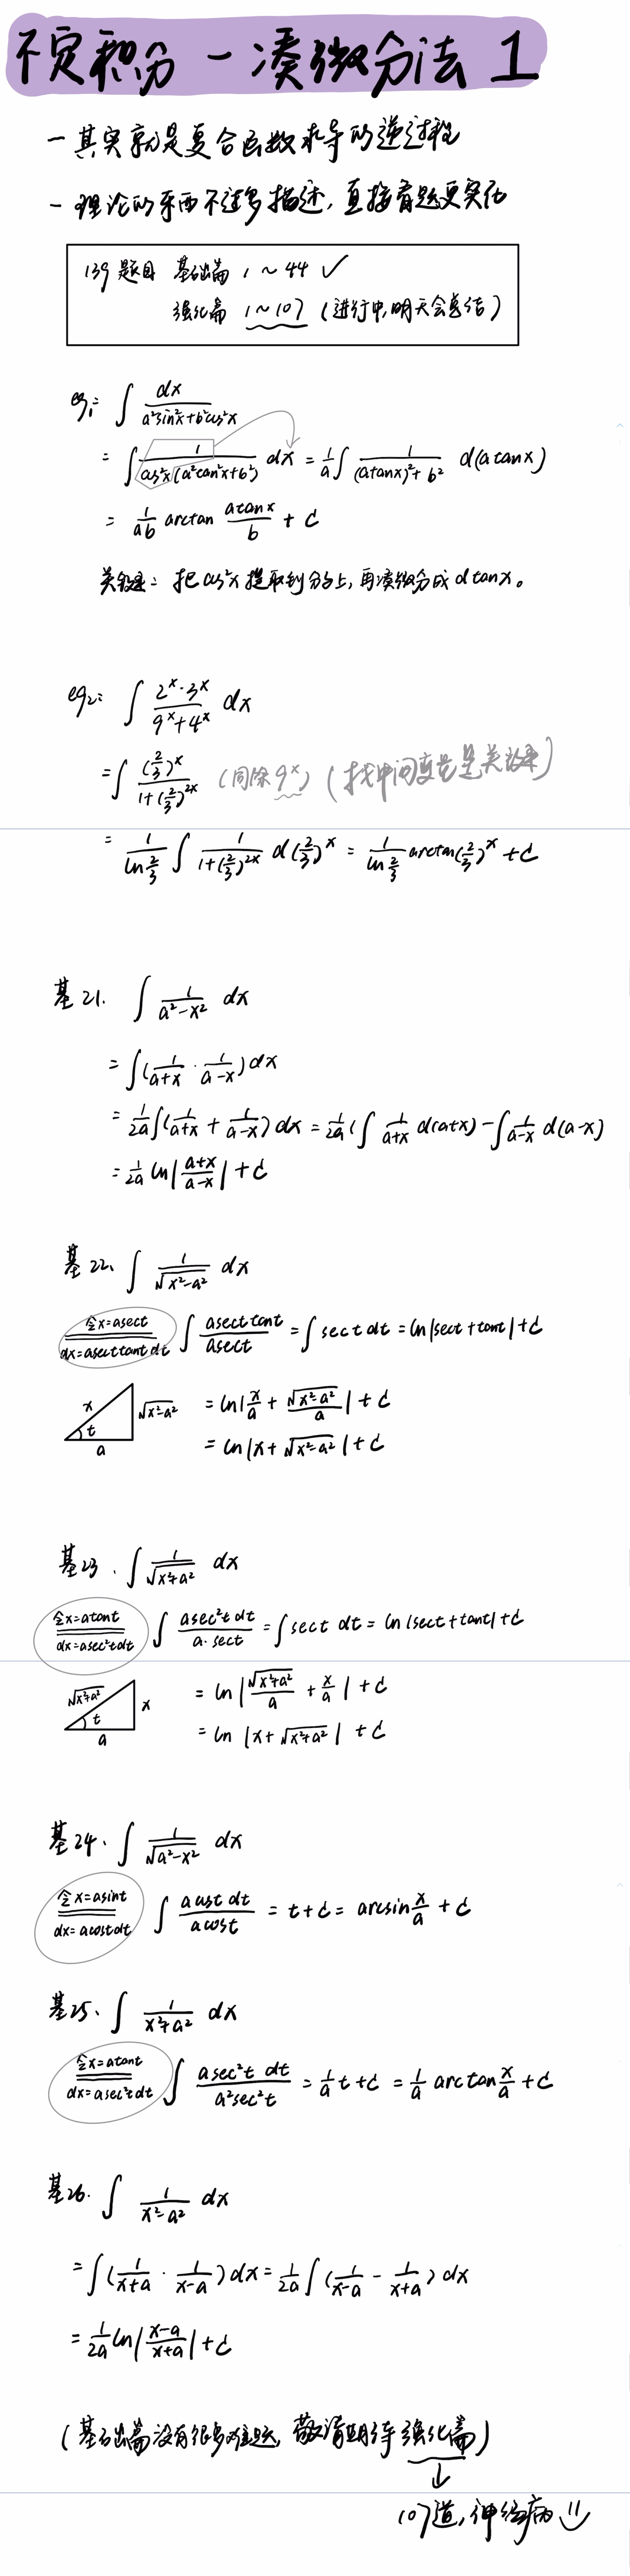 不定积分 - 凑微分法 1
- 其实就是复合函数求导的逆过程
- 理论的东西不过多描述, 直接看题更实在
139 题目 基础篇 1 ~ 44 ✓
强化篇 1 ~ 107 (进行中, 明天会总结)
eg1: ∫ dx/(a²sin²x+b²cos²x)
= ∫ 1/(cos²x(a²tan²x+b²)) dx = 1/a ∫ 1/((atanx)²+b²) d(atanx)
= 1/(ab) arctan (atanx)/b + C
关键是: 把cos²x提取到分子上, 再凑微分成dtanx。
eg2: ∫ (2^x·3^x)/(9^x+4^x) dx
= ∫ (2/3)^x/(1+(2/3)^(2x)) (同除9^x) (找中间变量是关键)
= 1/(ln 2/3) ∫ 1/(1+(2/3)^(2x)) d(2/3)^x = 1/(ln 2/3) arctan(2/3)^x + C
基21. ∫ 1/(a²-x²) dx
= ∫(1/(a+x) · 1/(a-x)) dx
= 1/2a ∫(1/(a+x) + 1/(a-x)) dx = 1/2a (∫ 1/(a+x) d(a+x) - ∫ 1/(a-x) d(a-x)
= 1/2a ln|(a+x)/(a-x)| + C
基22、∫ 1/√(x²-a²) dx
令x=asect
dx=asecttant dt
∫ asect tant/asect = ∫ sect dt = ln|sect+tant|+C
x √(x²-a²) t a
= ln|x/a + √(x²-a²)/a| + C
= ln|x+√(x²-a²)| + C
基23. ∫ 1/√(x²+a²) dx
令x=atant
dx=asec²tdt
∫ asec²t dt/(a·sect) = ∫ sect dt = ln|sect+tant|+C
√(x²+a²) x t a
= ln|√(x²+a²)/a + x/a| + C
= ln|x+√(x²+a²)| + C
基24、∫ 1/√(a²-x²) dx
令x=asint
dx=acostdt
∫ acost dt/acost = t+C = arcsin x/a + C
基25、∫ 1/(x²+a²) dx
令x=atant
dx=asec²tdt
∫ asec²t dt/(a²sec²t) = 1/a t+C = 1/a arctan x/a + C
基26. ∫ 1/(x²-a²) dx
= ∫(1/(x+a) · 1/(x-a)) dx = 1/2a ∫(1/(x-a) - 1/(x+a)) dx
= 1/2a ln|(x-a)/(x+a)| + C
(基础篇没有很多难题, 敬请期待强化篇)
↓
107道, 神经病